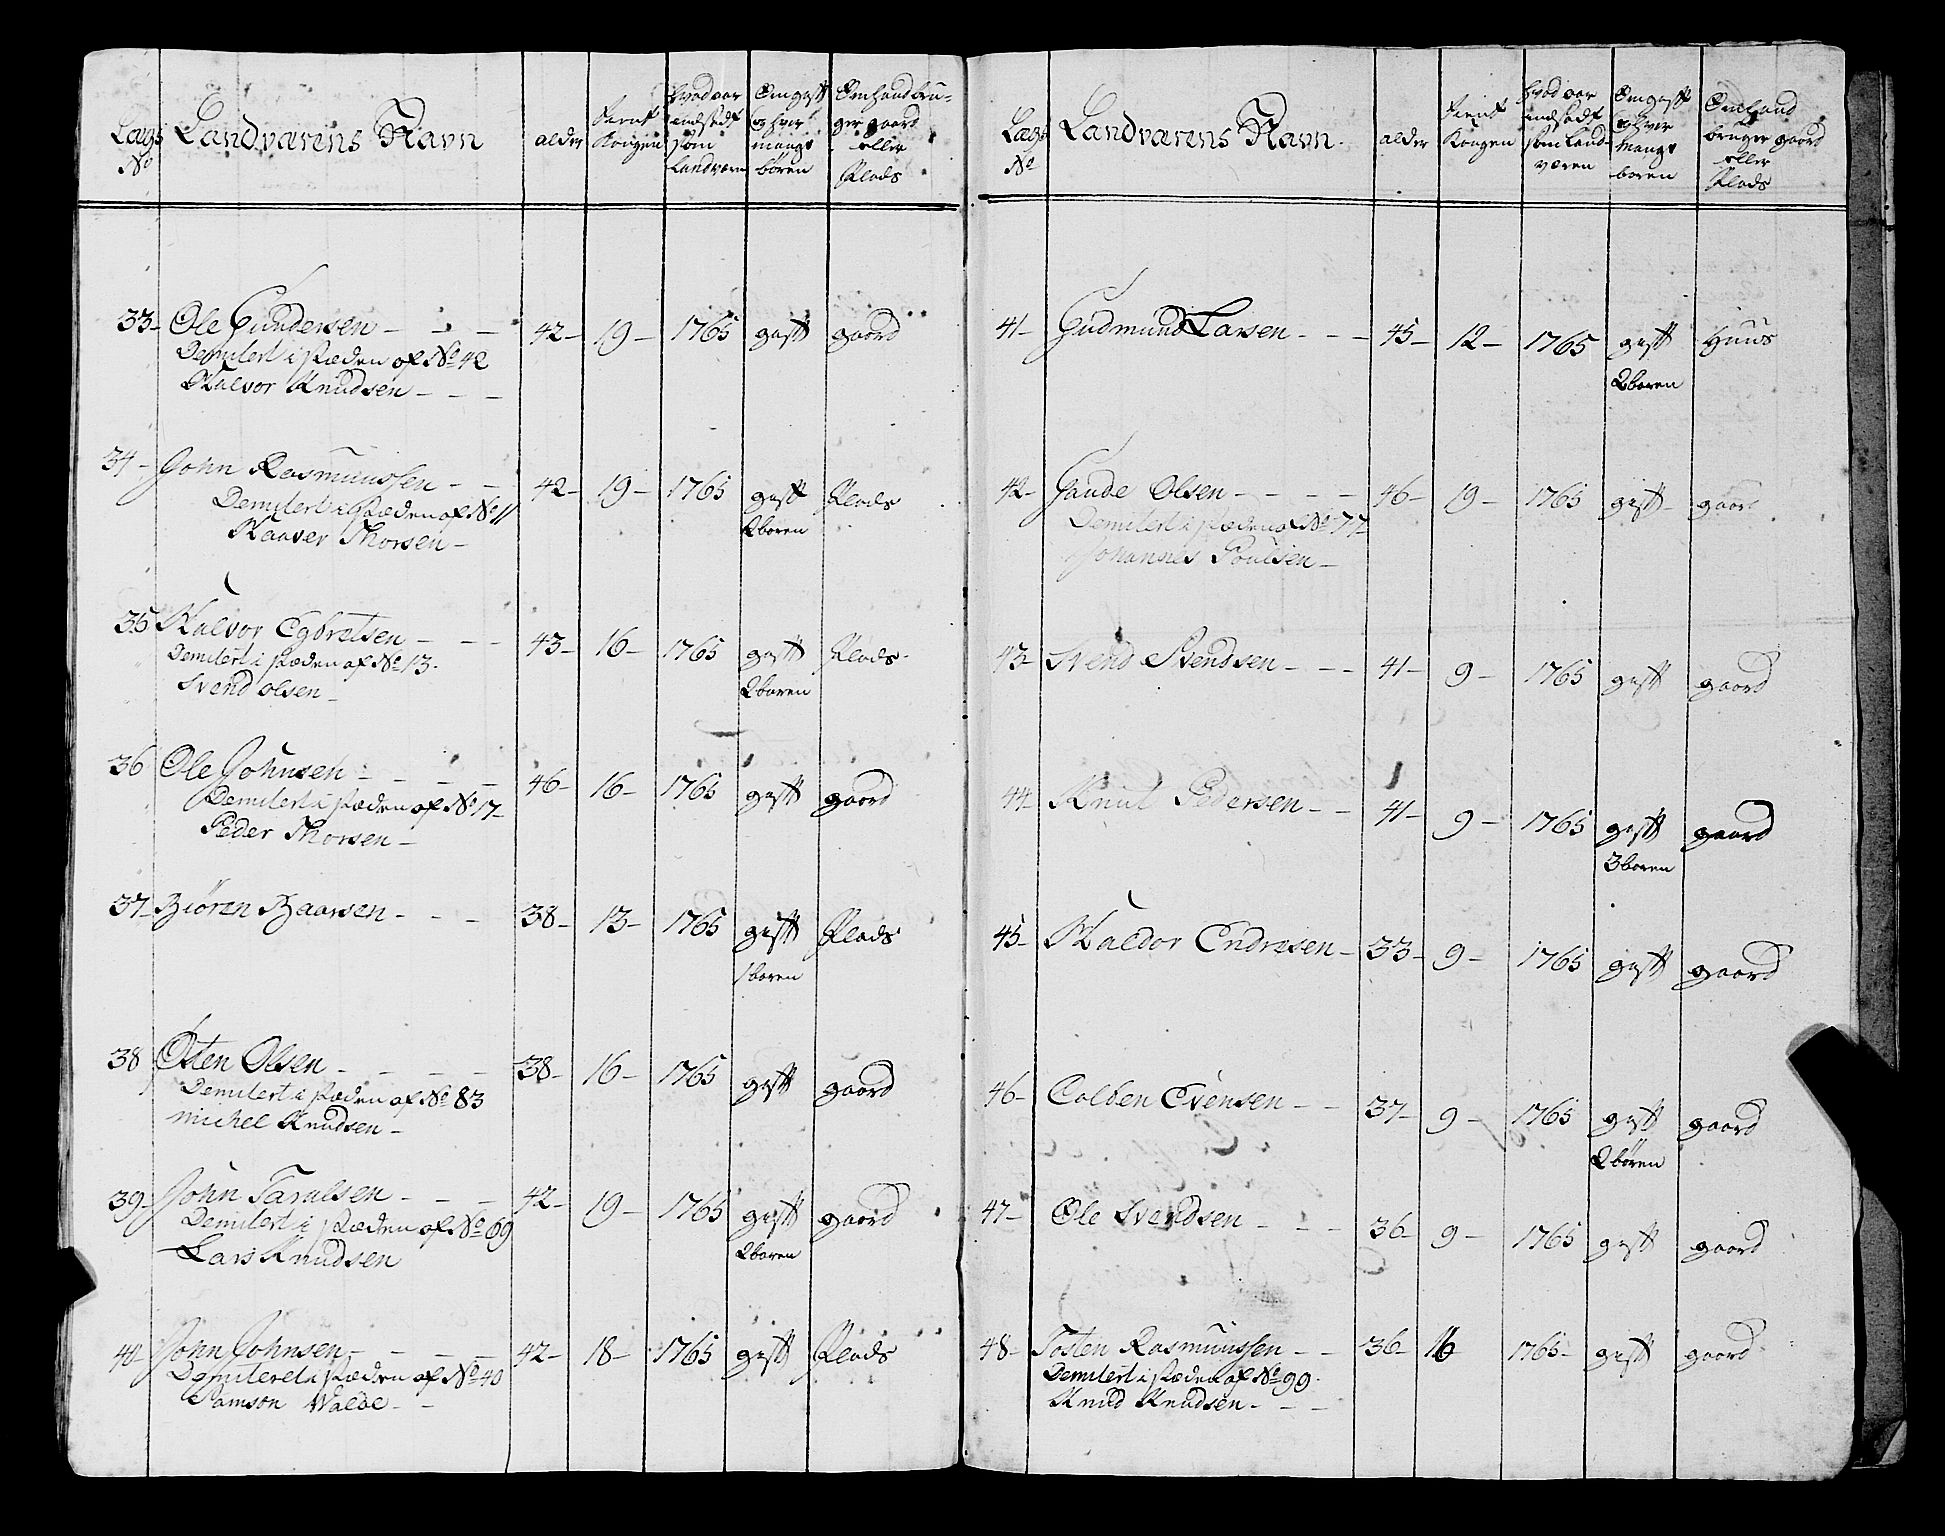 Lægs No | Landværens Navn | alder | tient Kongen | hvad aar indsadt som Landværn | Om gift og hvor mange børen | Om hand bruger gaard eller Plads
33- Ole Gundersen - - - 42- 19- 1765 gift gaard
Demitert i stæden af No 42
Halvor Knudsen - - -
34- John Rasmunssen - - 42- 19- 1765 gift Plads
Demitert i stæden af No 11 2 boren
Haaver Thorsen -
35 Halvor Egbretsen - - - 43- 16- 1765 gift Plads
Demitert i stæden af No 13. 2 boren
Svend olsen -
36 Ole Johnsen - - - - 46- 16- 1765 gift gaard
Demitert i stæden af No 17-
Peder Thorsen -
37- Biören Baarsen - - - 38- 13- 1765 gift Plads
1 boren
38 Osten Olsen - - - - 38- 16- 1765 gift gaard
Demitert i stæden af No 83
michel Knudsen -
39- John Tarulsen - - - 42- 19- 1765 gift gaard
Demitert i stæden af No 69 2 boren
Lars Knudsen
40- John Johnsen - - - - 42- 18- 1765 gift Plads
Demiteret i stæden af No 40
Samson Walde - -
Lægs No | Landværens Navn. | alder | tient Kongen | hvad aar indsadt som Landværen | Om gift og hvor mange boren | Om hand bruger gaard eller Plads
41- Gudmund Larsen - - - 45- 12- 1765 gift Huus
2 boren
42- Gaude Olsen - - - - 46- 19- 1765 gift- gaard
Demitert i stæden af No 77-
Johannes Poulsen -
43- Svend Svendsen - - - 41- 9- 1765 gift gaard
44- Knut Pedersen - - 41- 9- 1765 gift gaard
3 boren
45- Haldor Endresen - 33- 9- 1765 gift gaard
46- Colben Evensen - - 37- 9- 1765 gift gaard
2 bören
47- Ole Svendsen - - - 36- 9- 1765 gift gaard
48- Tosten Rasmunssen - - 36- 16 1765- gift gaard
Demitert i stæden af No 99.
Knud Knudsen - - -